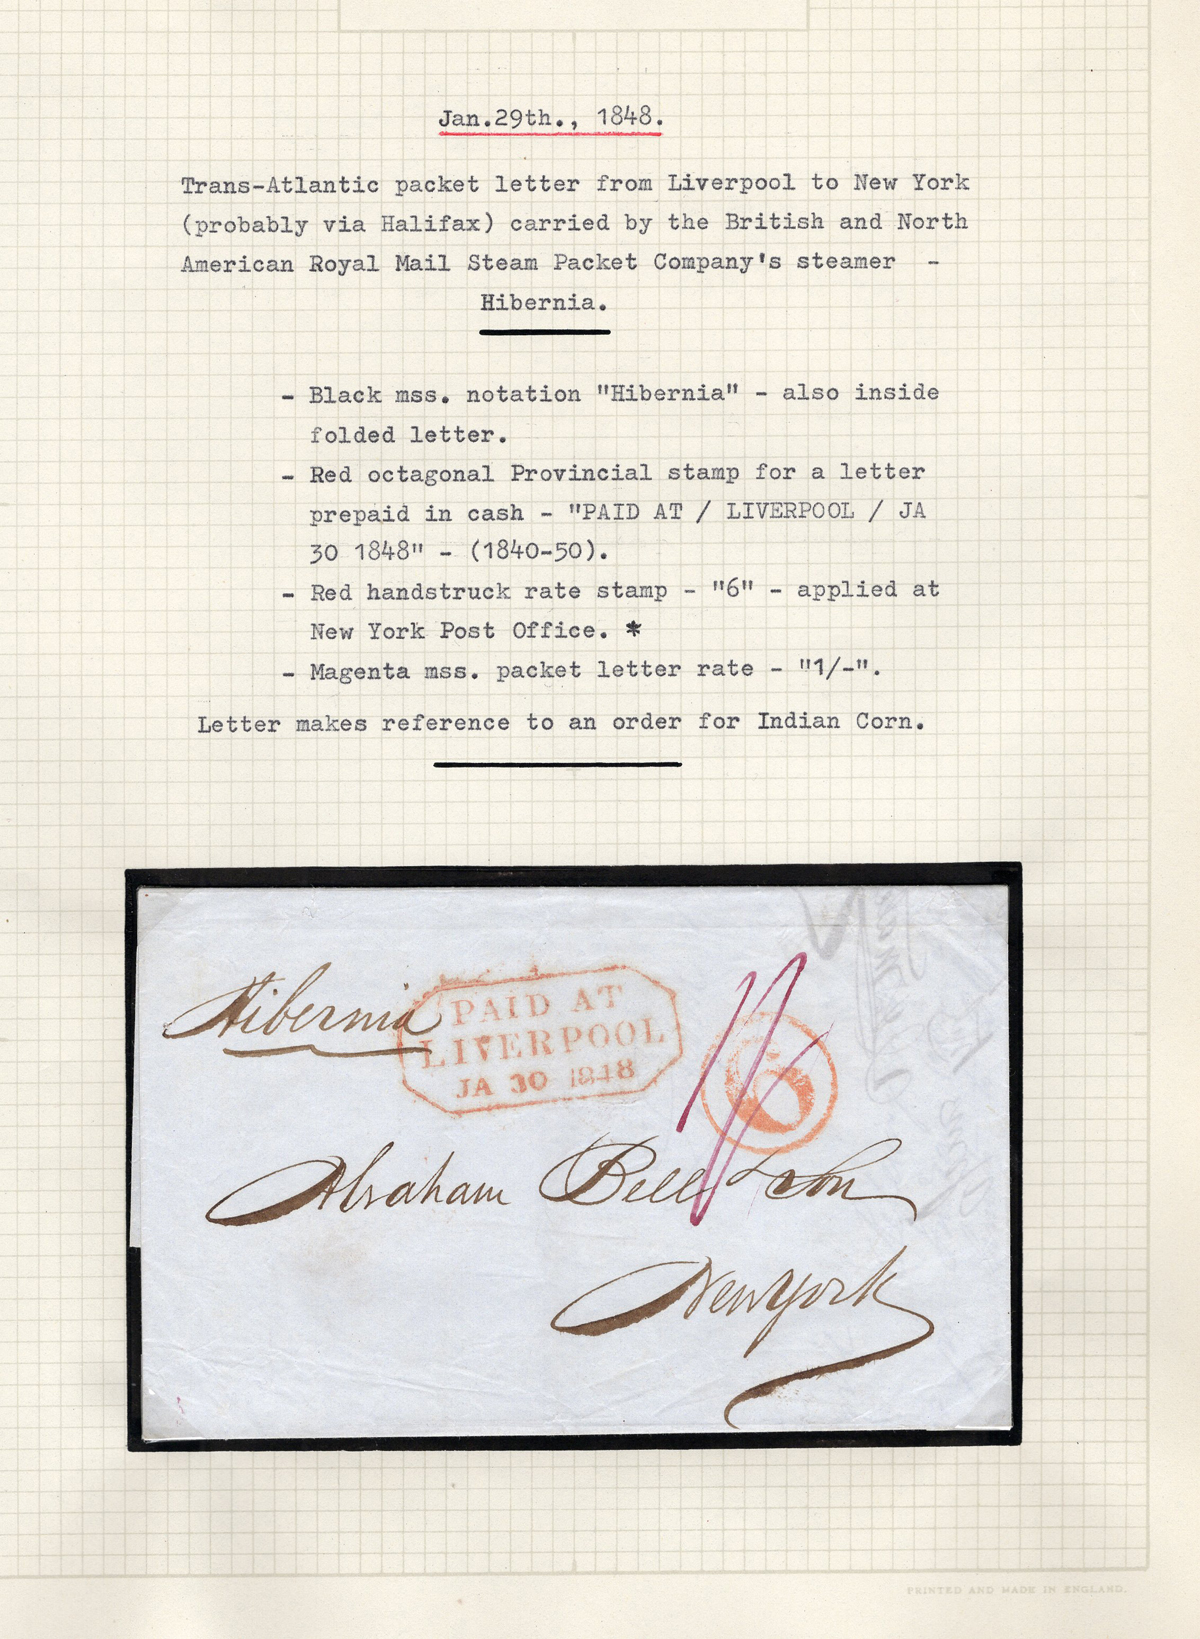 Jan.29th., 1848.
Trans-Atlantic packet letter from Liverpool to New York
(probably via Halifax) carried by the British and North
American Royal Mail Steam Packet Company's steamer -
Hibernia.
- Black mss. notation "Hibernia" - also inside
folded letter.
- Red octagonal Provincial stamp for a letter
prepaid in cash - "PAID AT / LIVERPOOL / JA
30 1848" - (1840-50).
- Red handstruck rate stamp - "6" - applied at
New York Post Office. *
- Magenta mss. packet letter rate - "1/-".
Letter makes reference to an order for Indian Corn.
Hibernia
PAID AT
LIVERPOOL
JA 30 1848
1/
6
Abraham Bell & Son
New York
PRINTED AND MADE IN ENGLAND.